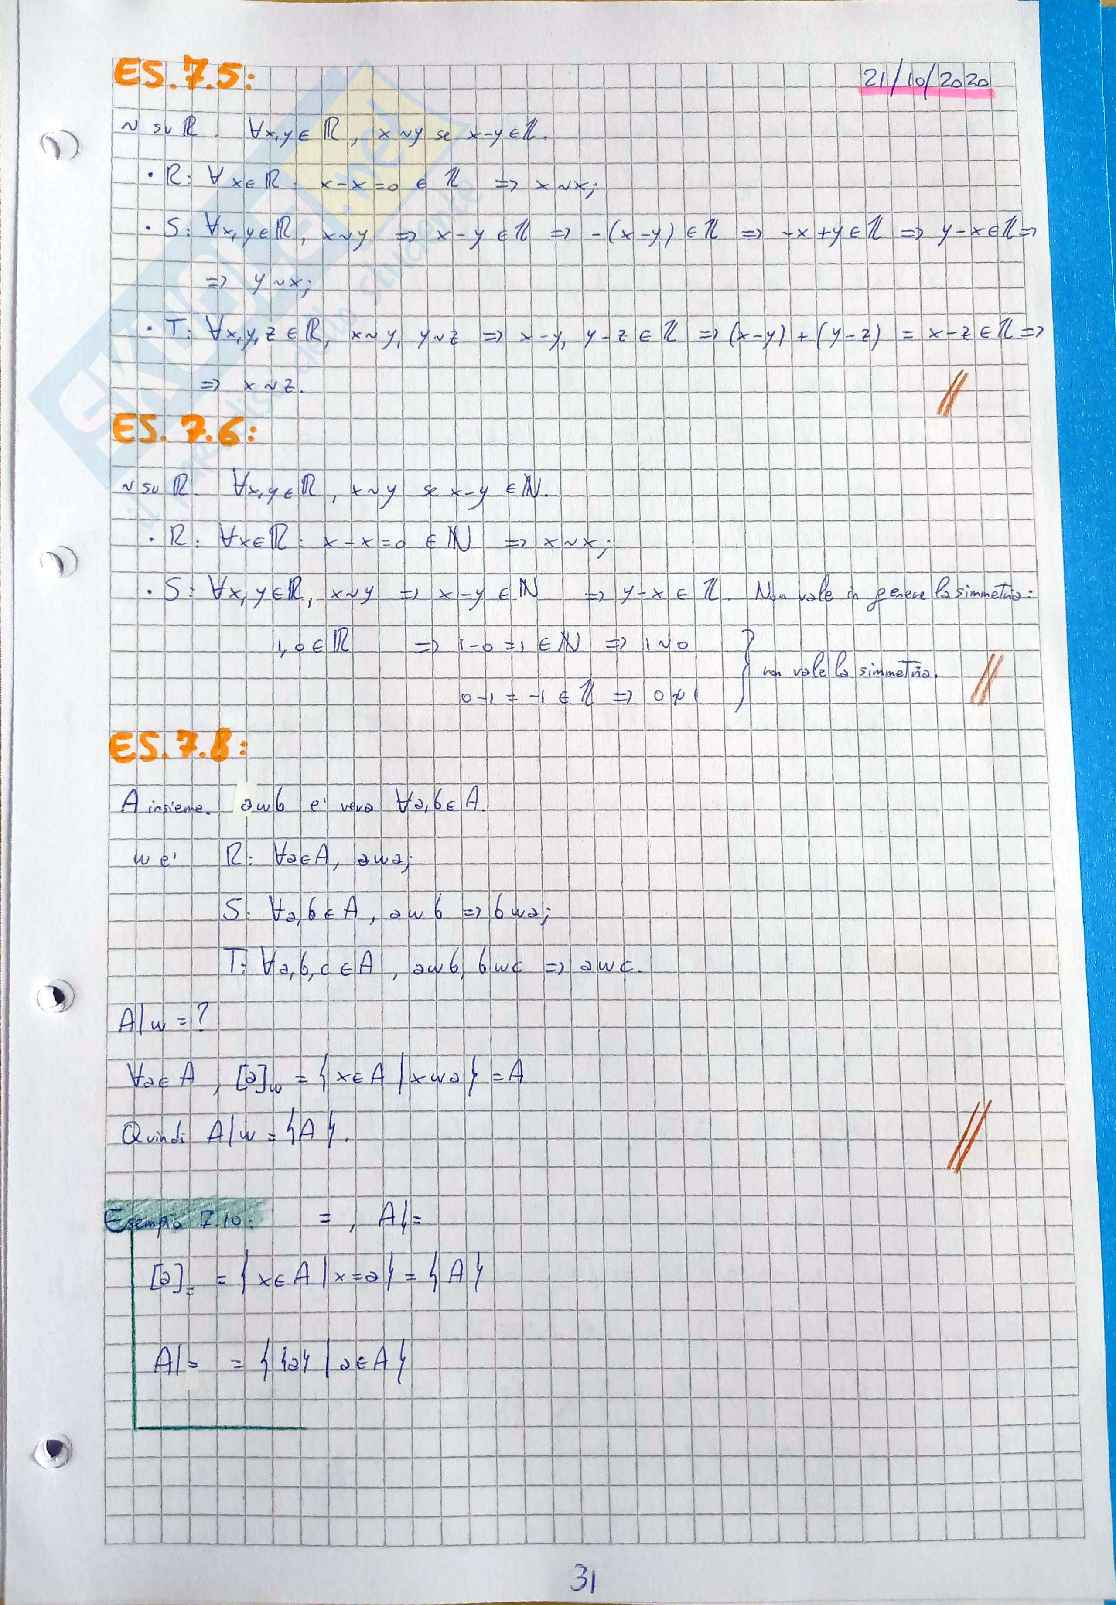 ES.7.5:
21/10/2020
~ su ℝ. ∀x,y∈ℝ, x~y se x-y∈ℤ.
• R: ∀x∈ℝ: x-x=0 ∈ ℤ => x~x;
• S: ∀x,y∈ℝ, x~y => x-y∈ℤ => -(x-y)∈ℤ => -x+y∈ℤ => y-x∈ℤ =>
=> y~x;
• T: ∀x,y,z∈ℝ, x~y, y~z => x-y, y-z∈ℤ => (x-y)+(y-z) = x-z∈ℤ =>
=> x~z.
ES.7.6:
~ su ℝ. ∀x,y∈ℝ, x~y se x-y ∈ℕ.
• R: ∀x∈ℝ: x-x=0 ∈ℕ => x~x;
• S: ∀x,y∈ℝ, x~y => x-y∈ℕ => y-x∈ℤ. Non vale in genere la simmetria:
1,0∈ℝ => 1-0=1∈ℕ => 1~0
0-1=-1∈ℤ => 0≁1 } non vale la simmetria.
ES.7.8:
A insieme. awb e' vera ∀a,b∈A.
w e' R: ∀a∈A, awa;
S: ∀a,b∈A, awb => bwa;
T: ∀a,b,c∈A, awb, bwc => awc.
A/w = ?
∀a∈A, [a]w = {x∈A | xwa} = A
Quindi A/w = {A}.
Esempio 7.10: = , A/=
[a]= = {x∈A | x=a} = {A}
A/= = {{a} | a∈A}
31